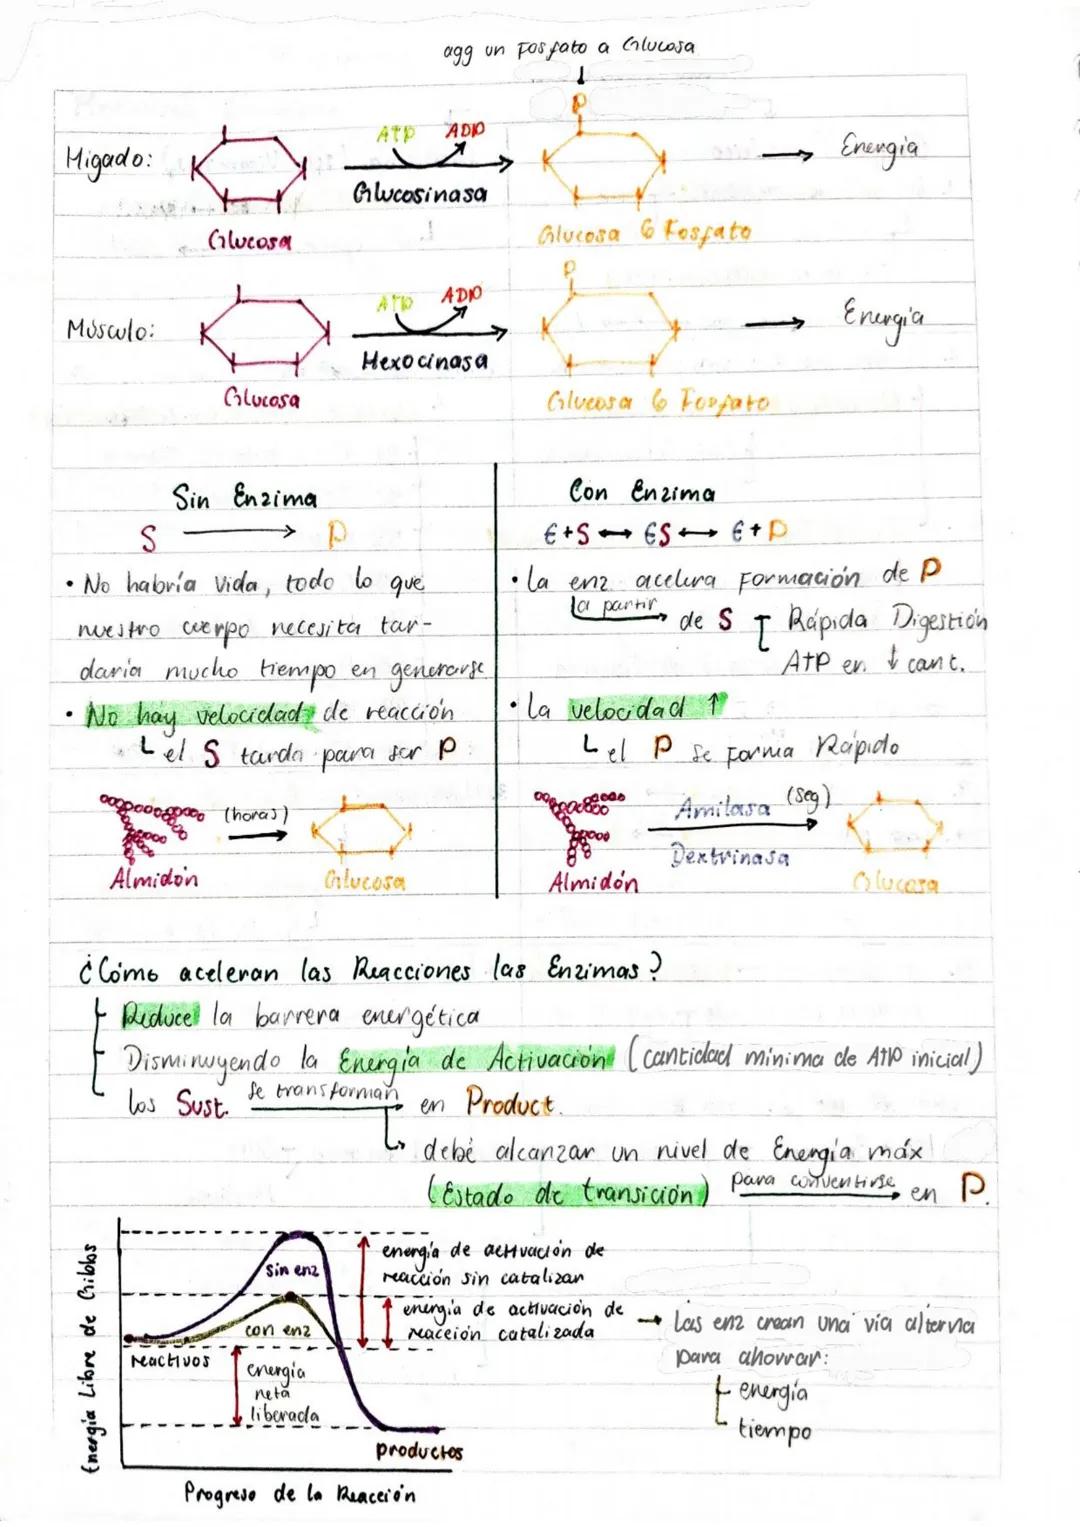 agg un Fosfato a Glucosa
P
Higado:
ATP ADP
Glucosinasa
Glucosa
Glucosa 6 Fosfato
Energía
P
Músculo:
ATP ADP
Hexocinasa
Glucosa
Glucosa 6 Fosfato
Energía
Sin Enzima
S → P
• No habría vida, todo lo que
nuestro cuerpo necesita tar-
daría mucho tiempo en generarse
• No hay velocidad de reacción
el S tarda para ser P
Almidón
(horas)
Glucosa
Con Enzima
E+S ↔ ES ↔ E+P
• La enz acelera Formación de P
a partir → de S
Rápida Digestión
ATP en ↓ cant.
• La velocidad ↑
el P se forma Rápido
Almidón
Amilasa (seg)
Dextrinasa
Glucosa
¿Cómo aceleran las Reacciones las Enzimas?
Reduce la barrera energética
Disminuyendo la Energía de Activación (cantidad mínima de ATP inicial)
los Sust. se transforman → en Product.
debé alcanzar un nivel de Energía máx
(Estado de transición) para conventirse → en P.
Energía Libre de Gibbbs
sin enz
con enz
reactivos
energía
neta
liberada
productos
Progreso de la Reacción
energía de activación de
reacción sin catalizar
energía de activación de
reacción catalizada
→ Las enz crean una vía alterna
para ahorrar:
energía
tiempo